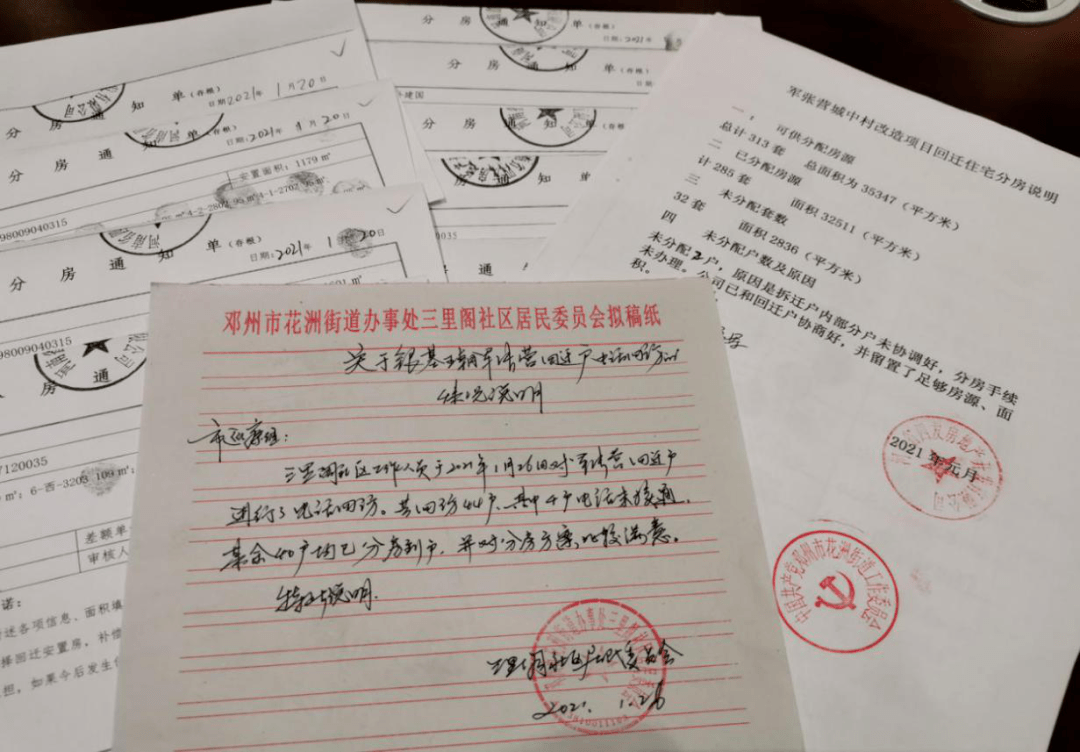 分 房 通 知 单（存根）
日期:2021年1月20日
分 房 通 知 单（存根）
日期:2021年1月20日
安置面积：1179㎡
4-1-2702
4-2-2802
98009040315
分 房 通 知 单（存根）
日期:2021年1月20日
98009040315
分 房 通
通
7120035
6-西-3203 109㎡
差额单
审核人
诺：
述各项信息、面积填
择回迁安置房，补偿
担。如果今后发生
通 知 单（存根）
日期:2021年
分 房 通 知 单（存根）
分 房 通 知 单（存根）
建国
分 房 通 知 单（存根）
通 知 单
0035
分 房 通
军张营城中村改造项目回迁住宅分房说明
一、 可供分配房源
总计313套 总面积为35347（平方米）
二 已分配房源
计285套 面积32511（平方米）
三 未分配套数
32套 面积2836（平方米）
四 未分配户数及原因
未分配2户，原因是拆迁户内部分户未协调好，分房手续
未办理。公司已和回迁户协商好，并留置了足够房源、面
积。
2021年元月
中国共产党邓州市花洲街道工作委员会
邓州市花洲街道办事处三里阁社区居民委员会拟稿纸
关于银基王朝军张营回迁户电话回访的
情况说明
市巡察组：
三里阁社区工作人员于2021年1月26日对军张营回迁户
进行了电话回访。共回访44户，其中4户电话未接通，
其余40户均已分房到户，并对分房方案比较满意。
特此说明.
三里阁社区居民委员会
2021.1.26